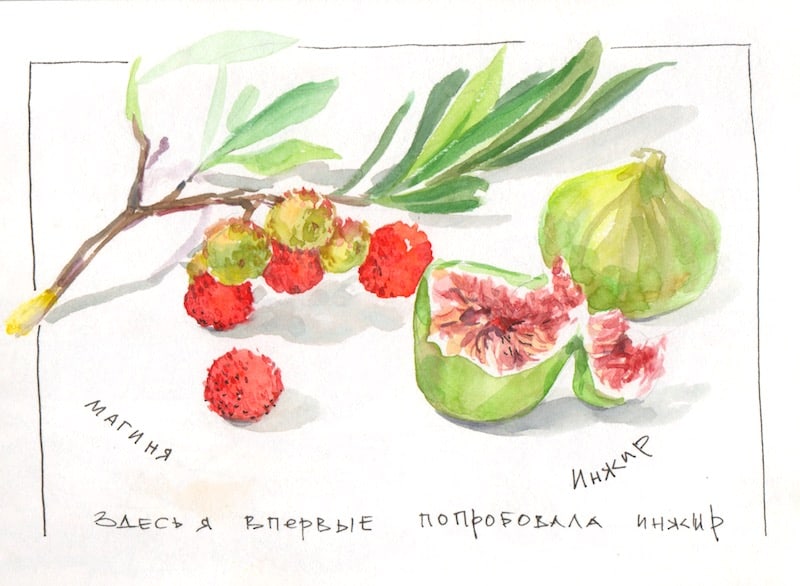 МАГИНЯ
ИНЖИР
ЗДЕСЬ Я ВПЕРВЫЕ ПОПРОБОВАЛА ИНЖИР